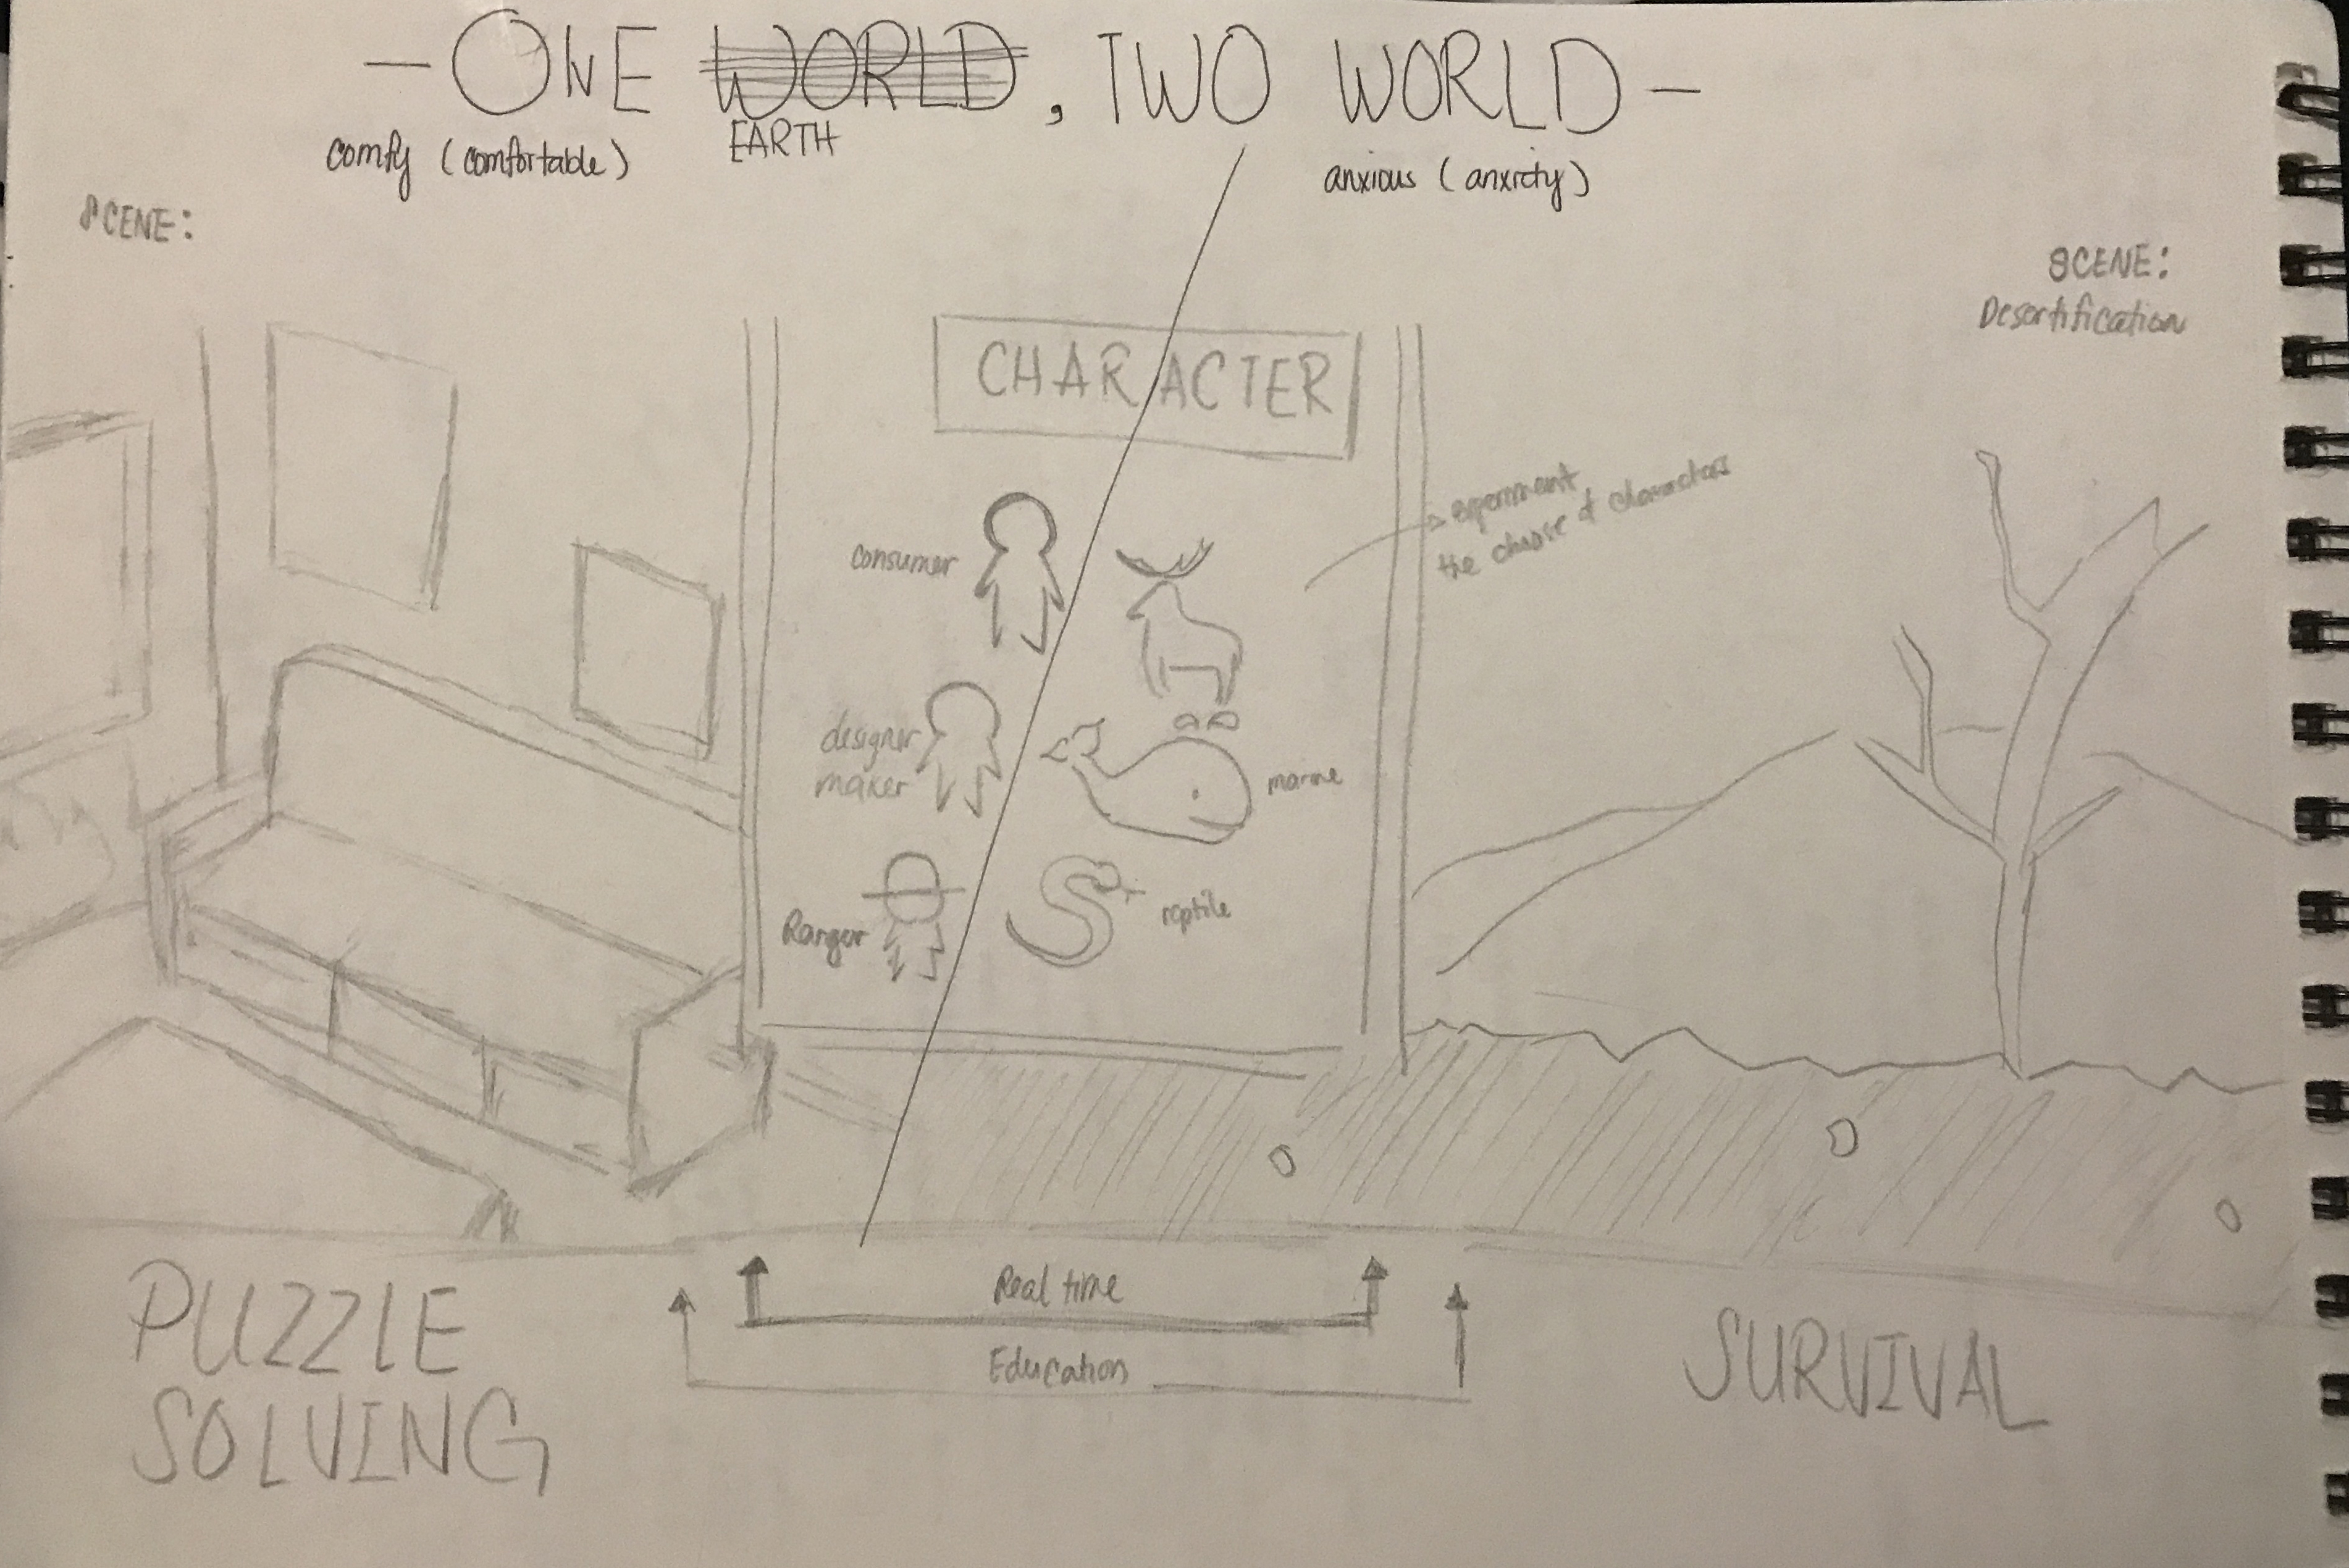 — ONE WORLD, TWO WORLD —
EARTH
comfy (comfortable)
anxious (anxiety)
SCENE:
SCENE:
Desertification
CHARACTER
experiment
the choose of characters
consumer
designer
maker
marine
Ranger
reptile
Real time
Education
PUZZLE
SOLVING
SURVIVAL